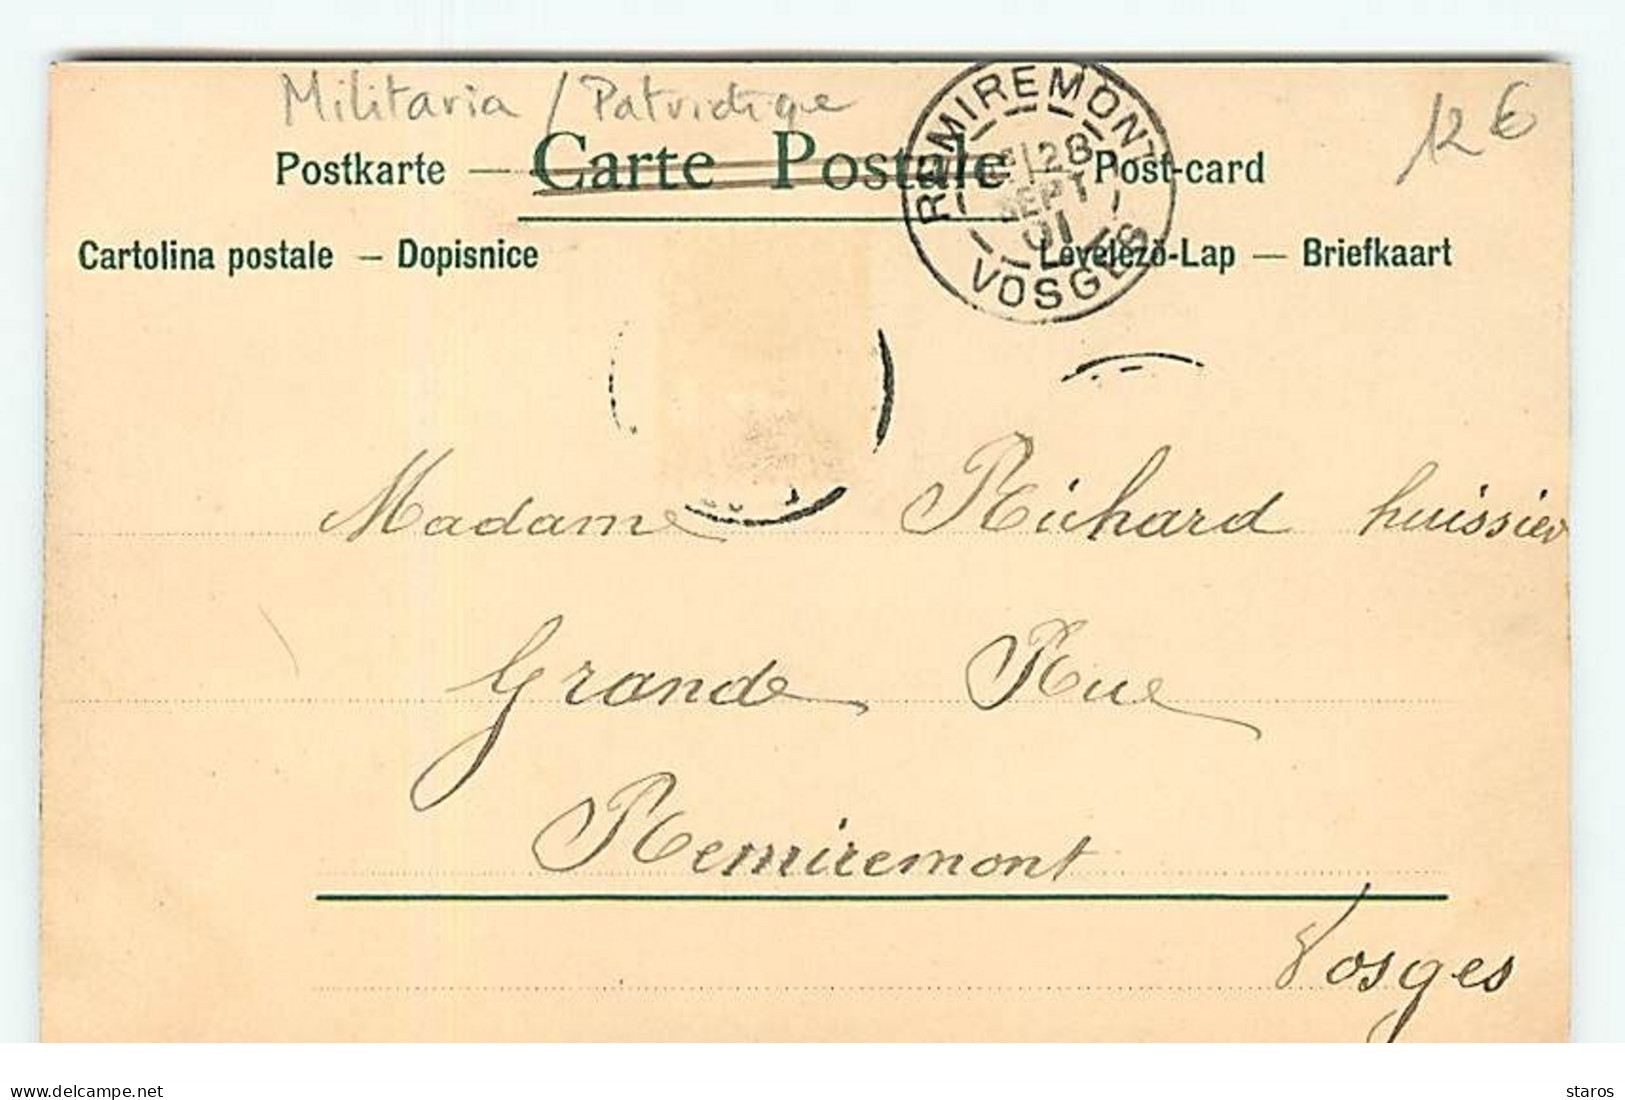 Militaria / Patriotique
12 €
Postkarte — Carte Postale — Post-card
Cartolina postale – Dopisnice
Levelező-Lap — Briefkaart
REMIREMONT
28
SEPT
01
VOSGES
Madame Richard huissier
Grande Rue
Remiremont
Vosges
delcampe.net
staros